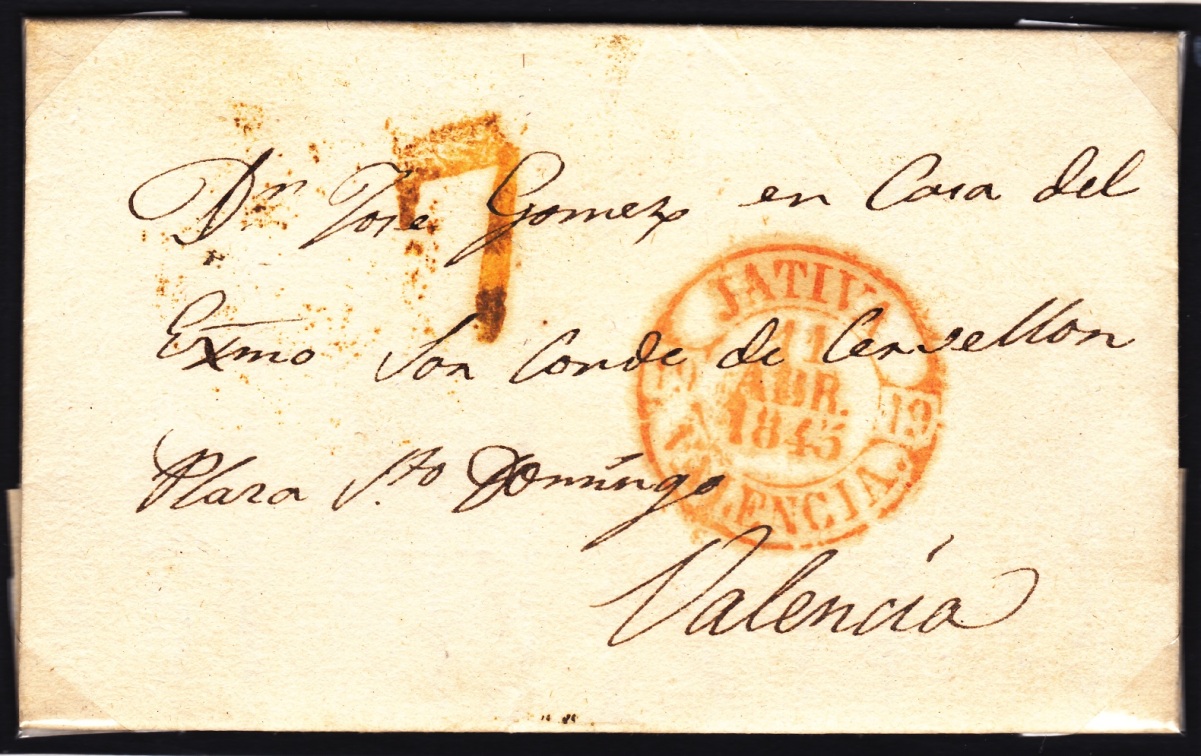 7
Dn Jose Gomez en Casa del
Exmo Sor Conde de Cervellon
Plaza Sto Domingo
Valencia
JATIVA
11
ABR.
1845
19 19
VALENCIA.